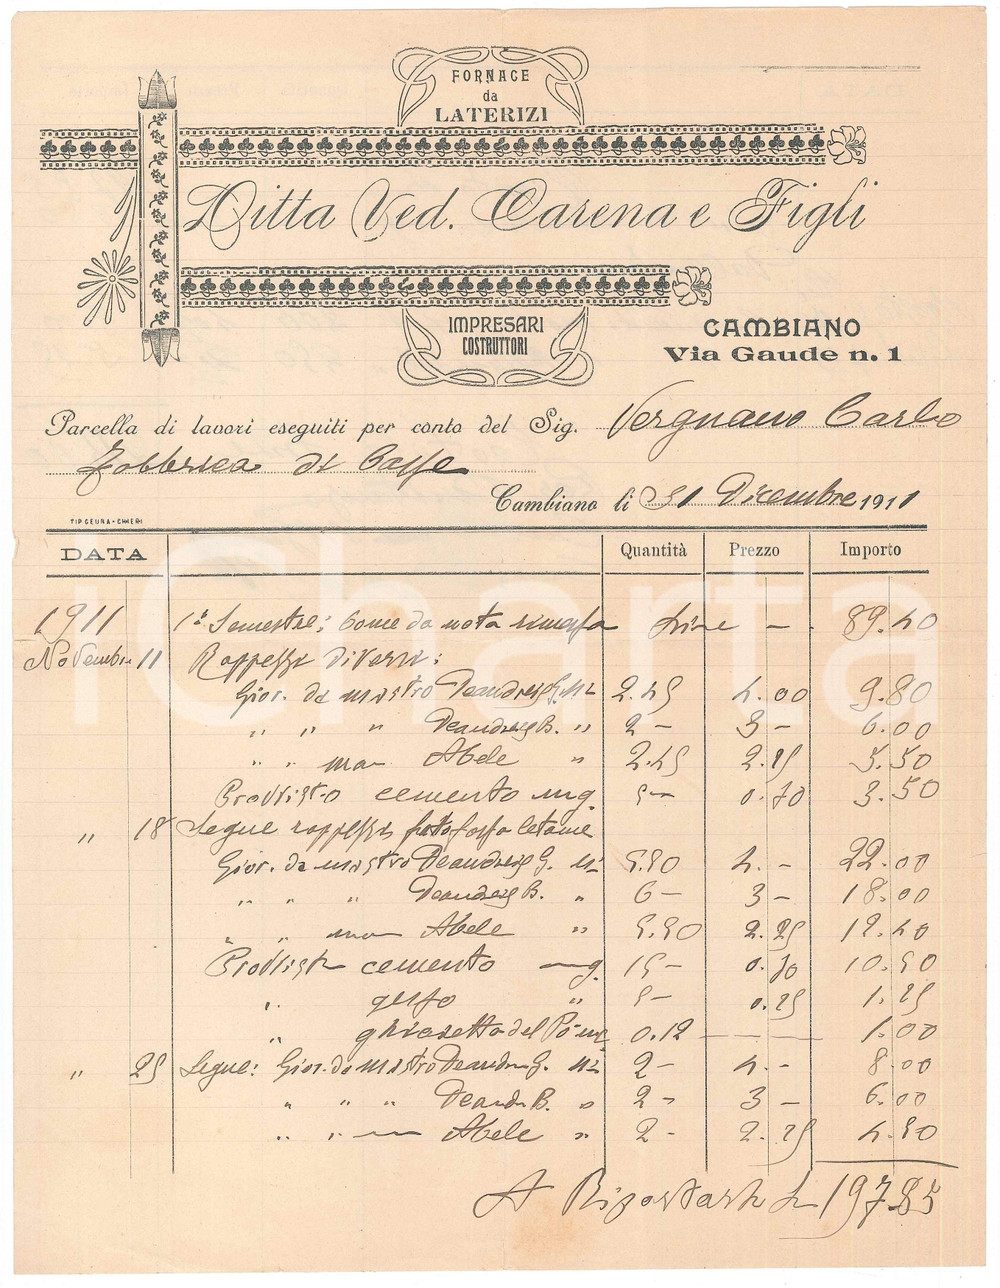 FORNACE
da
LATERIZI
Ditta Ved. Carena e Figli
IMPRESARI
COSTRUTTORI
CAMBIANO
Via Gaude n. 1
Parcella di lavori eseguiti per conto del Sig. Vergnano Carlo
Fabbrica di Casse
Cambiano li 31 Dicembre 1911
TIP. GEUNA - CHIERI
DATA Quantità Prezzo Importo
1911 1° Semestre: Come da nota rimessa Lire - 89.40
Novembre 11 Rappezzi diversi:
Gior. da mastro Deandreis G. N° 2.45 4.00 9.80
" " " Deandreis B. " 2 - 3 - 6.00
" " man Abele " 2.45 2.25 5.50
Provvisto cemento mg. 5 - 0.70 3.50
" 18 Segue rappezzi fossa letame
Gior. da mastro Deandreis G. N° 5.50 4. - 22.00
" " " Deandreis B. " 6 - 3 - 18.00
" " man Abele " 5.50 2.25 12.40
Provvisto cemento mg. 15 - 0.70 10.50
" gesso " 5 - 0.25 1.25
" ghiaietta del Po m 0.12 - 1.00
" 25 Segue: Gior. da mastro Deandreis G. N° 2 - 4. - 8.00
" " " Deandreis B. " 2 - 3 - 6.00
" " man Abele " 2 - 2.25 4.50
A Riportarsi L 197.85
iCharta